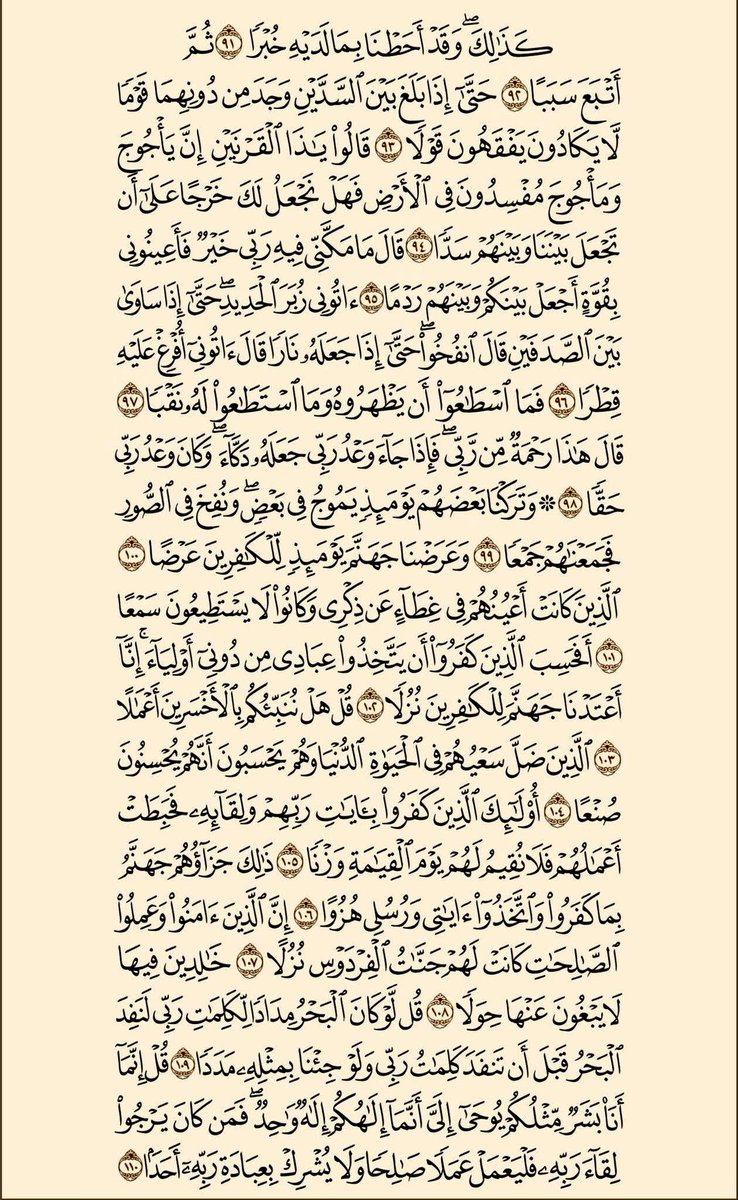 كَذَٰلِكَۖ وَقَدۡ أَحَطۡنَا بِمَا لَدَيۡهِ خُبۡرٗا ٩١ ثُمَّ
أَتۡبَعَ سَبَبًا ٩٢ حَتَّىٰٓ إِذَا بَلَغَ بَيۡنَ ٱلسَّدَّيۡنِ وَجَدَ مِن دُونِهِمَا قَوۡمٗا
لَّا يَكَادُونَ يَفۡقَهُونَ قَوۡلٗا ٩٣ قَالُواْ يَٰذَا ٱلۡقَرۡنَيۡنِ إِنَّ يَأۡجُوجَ
وَمَأۡجُوجَ مُفۡسِدُونَ فِي ٱلۡأَرۡضِ فَهَلۡ نَجۡعَلُ لَكَ خَرۡجًا عَلَىٰٓ أَن
تَجۡعَلَ بَيۡنَنَا وَبَيۡنَهُمۡ سَدّٗا ٩٤ قَالَ مَا مَكَّنِّي فِيهِ رَبِّي خَيۡرٞ فَأَعِينُونِي
بِقُوَّةٍ أَجۡعَلۡ بَيۡنَكُمۡ وَبَيۡنَهُمۡ رَدۡمًا ٩٥ ءَاتُونِي زُبَرَ ٱلۡحَدِيدِۖ حَتَّىٰٓ إِذَا سَاوَىٰ
بَيۡنَ ٱلصَّدَفَيۡنِ قَالَ ٱنفُخُواْۖ حَتَّىٰٓ إِذَا جَعَلَهُۥ نَارٗا قَالَ ءَاتُونِيٓ أُفۡرِغۡ عَلَيۡهِ
قِطۡرٗا ٩٦ فَمَا ٱسۡطَٰعُوٓاْ أَن يَظۡهَرُوهُ وَمَا ٱسۡتَطَٰعُواْ لَهُۥ نَقۡبٗا ٩٧
قَالَ هَٰذَا رَحۡمَةٞ مِّن رَّبِّيۖ فَإِذَا جَآءَ وَعۡدُ رَبِّي جَعَلَهُۥ دَكَّآءَۖ وَكَانَ وَعۡدُ رَبِّي
حَقّٗا ٩٨ ۞ وَتَرَكۡنَا بَعۡضَهُمۡ يَوۡمَئِذٖ يَمُوجُ فِي بَعۡضٖۖ وَنُفِخَ فِي ٱلصُّورِ
فَجَمَعۡنَٰهُمۡ جَمۡعٗا ٩٩ وَعَرَضۡنَا جَهَنَّمَ يَوۡمَئِذٖ لِّلۡكَٰفِرِينَ عَرۡضًا ١٠٠
ٱلَّذِينَ كَانَتۡ أَعۡيُنُهُمۡ فِي غِطَآءٍ عَن ذِكۡرِي وَكَانُواْ لَا يَسۡتَطِيعُونَ سَمۡعًا
١٠١ أَفَحَسِبَ ٱلَّذِينَ كَفَرُوٓاْ أَن يَتَّخِذُواْ عِبَادِي مِن دُونِيٓ أَوۡلِيَآءَۚ إِنَّآ
أَعۡتَدۡنَا جَهَنَّمَ لِلۡكَٰفِرِينَ نُزُلٗا ١٠٢ قُلۡ هَلۡ نُنَبِّئُكُم بِٱلۡأَخۡسَرِينَ أَعۡمَٰلًا
١٠٣ ٱلَّذِينَ ضَلَّ سَعۡيُهُمۡ فِي ٱلۡحَيَوٰةِ ٱلدُّنۡيَا وَهُمۡ يَحۡسَبُونَ أَنَّهُمۡ يُحۡسِنُونَ
صُنۡعًا ١٠٤ أُوْلَٰٓئِكَ ٱلَّذِينَ كَفَرُواْ بِـَٔايَٰتِ رَبِّهِمۡ وَلِقَآئِهِۦ فَحَبِطَتۡ
أَعۡمَٰلُهُمۡ فَلَا نُقِيمُ لَهُمۡ يَوۡمَ ٱلۡقِيَٰمَةِ وَزۡنٗا ١٠٥ ذَٰلِكَ جَزَآؤُهُمۡ جَهَنَّمُ
بِمَا كَفَرُواْ وَٱتَّخَذُوٓاْ ءَايَٰتِي وَرُسُلِي هُزُوًا ١٠٦ إِنَّ ٱلَّذِينَ ءَامَنُواْ وَعَمِلُواْ
ٱلصَّٰلِحَٰتِ كَانَتۡ لَهُمۡ جَنَّٰتُ ٱلۡفِرۡدَوۡسِ نُزُلًا ١٠٧ خَٰلِدِينَ فِيهَا
لَا يَبۡغُونَ عَنۡهَا حِوَلٗا ١٠٨ قُل لَّوۡ كَانَ ٱلۡبَحۡرُ مِدَادٗا لِّكَلِمَٰتِ رَبِّي لَنَفِدَ
ٱلۡبَحۡرُ قَبۡلَ أَن تَنفَدَ كَلِمَٰتُ رَبِّي وَلَوۡ جِئۡنَا بِمِثۡلِهِۦ مَدَدٗا ١٠٩ قُلۡ إِنَّمَآ
أَنَا۠ بَشَرٞ مِّثۡلُكُمۡ يُوحَىٰٓ إِلَيَّ أَنَّمَآ إِلَٰهُكُمۡ إِلَٰهٞ وَٰحِدٞۖ فَمَن كَانَ يَرۡجُواْ
لِقَآءَ رَبِّهِۦ فَلۡيَعۡمَلۡ عَمَلٗا صَٰلِحٗا وَلَا يُشۡرِكۡ بِعِبَادَةِ رَبِّهِۦٓ أَحَدَۢا ١١٠